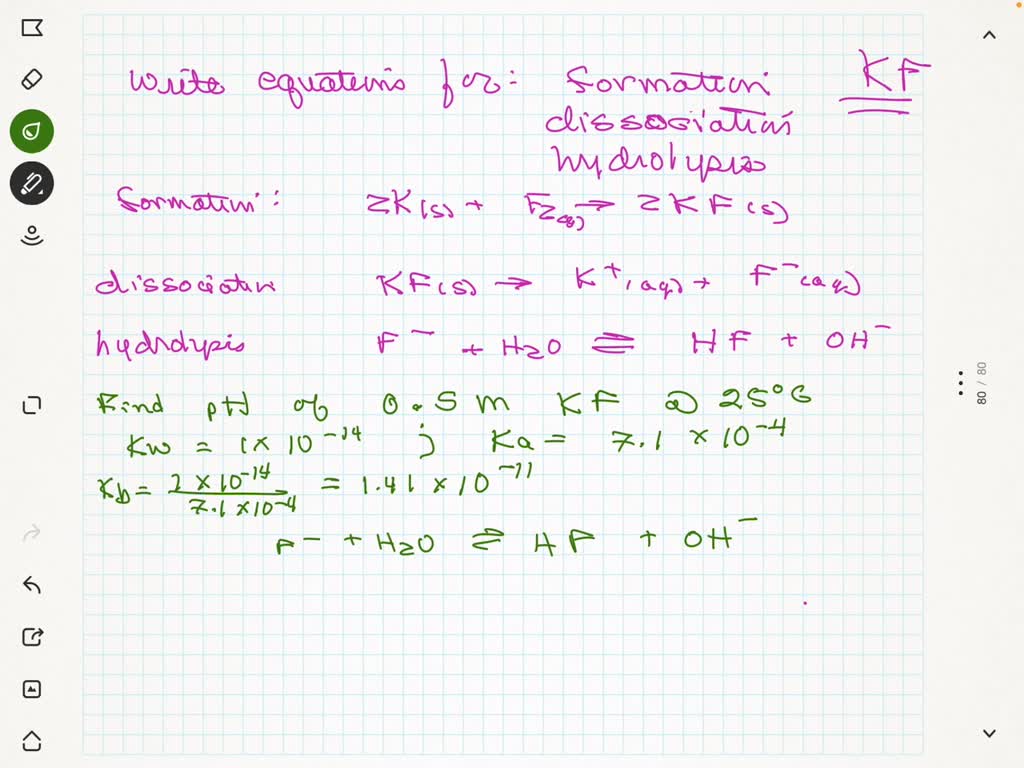 Write equations for: formation KF
dissociation
hydrolysis
formation: 2K(s) + F2(g) → 2KF(s)
dissociation KF(s) → K+(aq) + F-(aq)
hydrolysis F- + H2O ⇌ HF + OH-
Find pH of 0.5 m KF @ 25°C
Kw = 1 × 10^-14 ; Ka = 7.1 × 10^-4
Kb = 1 × 10^-14 / 7.1 × 10^-4 = 1.41 × 10^-11
F- + H2O ⇌ HF + OH-
80 / 80